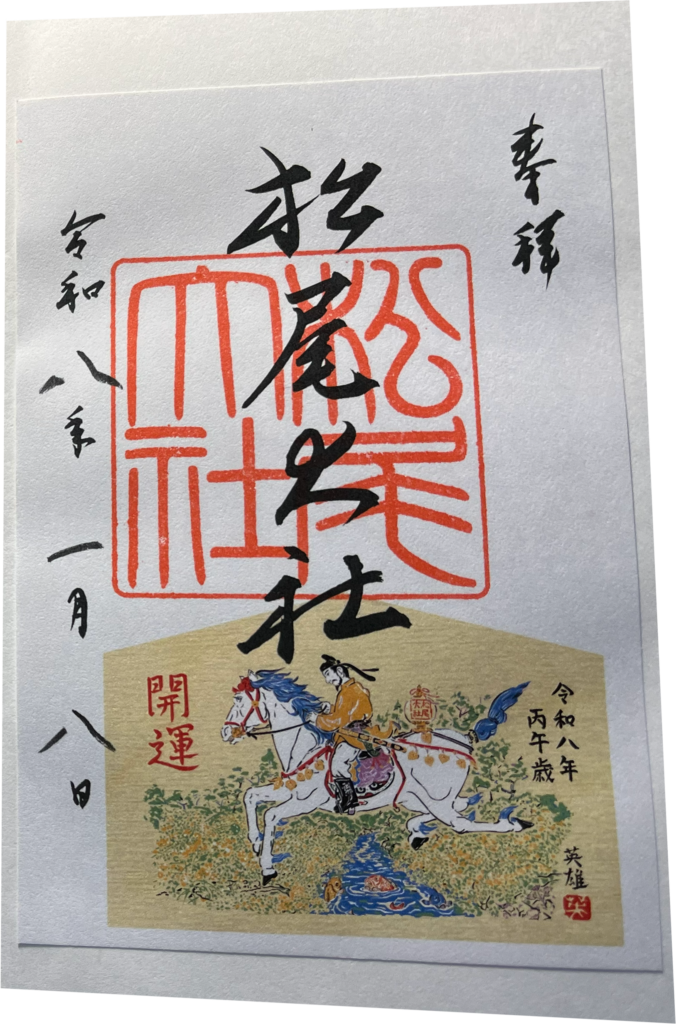 奉拝
松尾大社
松尾大社
令和八年 一月 八日
令和八年
丙午歳
開運
松尾大社
英雄